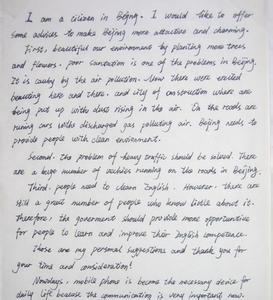 I am a citizen in Beijing. I would like to offer
some advices to make Beijing more attractive and charming.
First, beautiful our environment by planting more trees
and flowers. poor sanitation is one of the problems in Beijing.
It is by the air pollution. Now there were
beauting here and there. and city of construction where are
being put up with dust rising in the air. On the roads are
runing cars with discharged gas polluting air. Beijing needs to
provide people with clean enviroment.
Second. the problem of heavy traffic should be solved. There
are a huge number of vechies running on the roads in Beijing.
Third. people need to learn English. However. there are
still a great number of people who know little about it.
Therefore, the government should provide more opportunities
for people to learn and improve their English competence.
Those are my personal suggestions and thank you for
your time and consideration!
Nowdays, mobile phone is become the necessary device for
daily life because the communication is very important now.